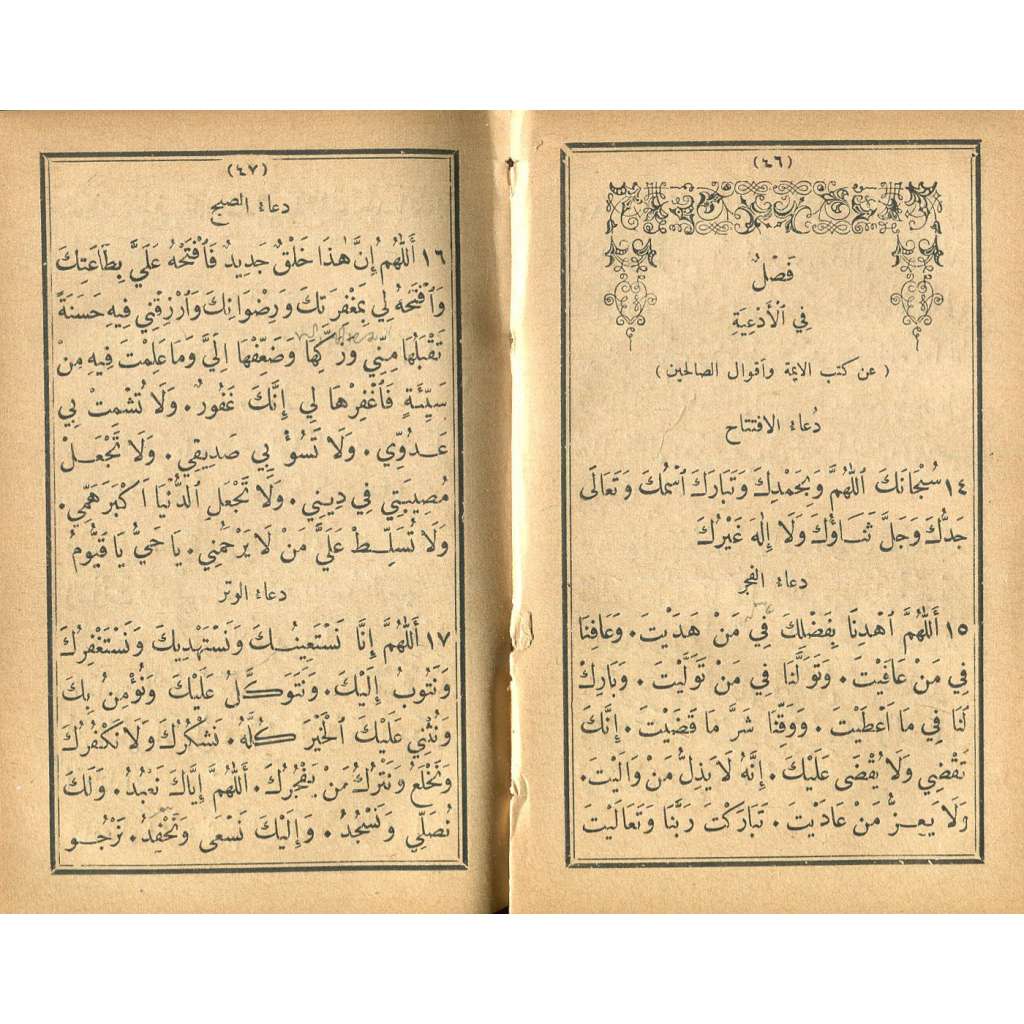 (٤٦)
فَصْلٌ
فِي ٱلْأَدْعِيَةِ
(عن كتب الايمة واقوال الصالحين)
دُعاء الافتتاح
١٤ سُبْحَانَكَ ٱللّٰهُمَّ وَبِحَمْدِكَ وَتَبَارَكَ ٱسْمُكَ وَتَعَالَى
جَدُّكَ وَجَلَّ ثَنَاؤُكَ وَلَا إِلٰهَ غَيْرُكَ
دعاء الفجر
١٥ أَللّٰهُمَّ ٱهْدِنَا بِفَضْلِكَ فِي مَنْ هَدَيْتَ. وَعَافِنَا
فِي مَنْ عَافَيْتَ. وَتَوَلَّنَا فِي مَنْ تَوَلَّيْتَ. وَبَارِكْ
لَنَا فِي مَا أَعْطَيْتَ. وَوَقِّنَا شَرَّ مَا قَضَيْتَ. إِنَّكَ
تَقْضِي وَلَا يُقْضَى عَلَيْكَ. إِنَّهُ لَا يَذِلُّ مَنْ وَالَيْتَ.
وَلَا يَعِزُّ مَنْ عَادَيْتَ. تَبَارَكْتَ رَبَّنَا وَتَعَالَيْتَ
(٤٧)
دعاء الصبح
١٦ أَللّٰهُمَّ إِنَّ هٰذَا خَلْقٌ جَدِيدٌ فَٱفْتَحْهُ عَلَيَّ بِطَاعَتِكَ
وَٱفْتَحْهُ لِي بِمَغْفِرَتِكَ وَرِضْوَانِكَ وَٱرْزِقْنِي فِيهِ حَسَنَةً
تَقْبَلُهَا مِنِّي وَزَكِّهَا وَضَعِّفْهَا إِلَيَّ وَمَا عَلِمْتَ فِيهِ مِنْ
سَيِّئَةٍ فَٱغْفِرْهَا لِي إِنَّكَ غَفُورٌ. وَلَا تُشْمِتْ بِي
عَدُوِّي. وَلَا تَسُؤْ بِي صَدِيقِي. وَلَا تَجْعَلْ
مُصِيبَتِي فِي دِينِي. وَلَا تَجْعَلِ ٱلدُّنْيَا أَكْبَرَ هَمِّي.
وَلَا تُسَلِّطْ عَلَيَّ مَنْ لَا يَرْحَمُنِي. يَا حَيُّ يَا قَيُّومُ
دعاء الوتر
١٧ أَللّٰهُمَّ إِنَّا نَسْتَعِينُكَ وَنَسْتَهْدِيكَ وَنَسْتَغْفِرُكَ
وَنَتُوبُ إِلَيْكَ. وَنَتَوَكَّلُ عَلَيْكَ وَنُؤْمِنُ بِكَ
وَنُثْنِي عَلَيْكَ ٱلْخَيْرَ كُلَّهُ. نَشْكُرُكَ وَلَا نَكْفُرُكَ
وَنَخْلَعُ وَنَتْرُكُ مَنْ يَفْجُرُكَ. أَللّٰهُمَّ إِيَّاكَ نَعْبُدُ. وَلَكَ
نُصَلِّي وَنَسْجُدُ. وَإِلَيْكَ نَسْعَى وَنَحْفِدُ. نَرْجُو